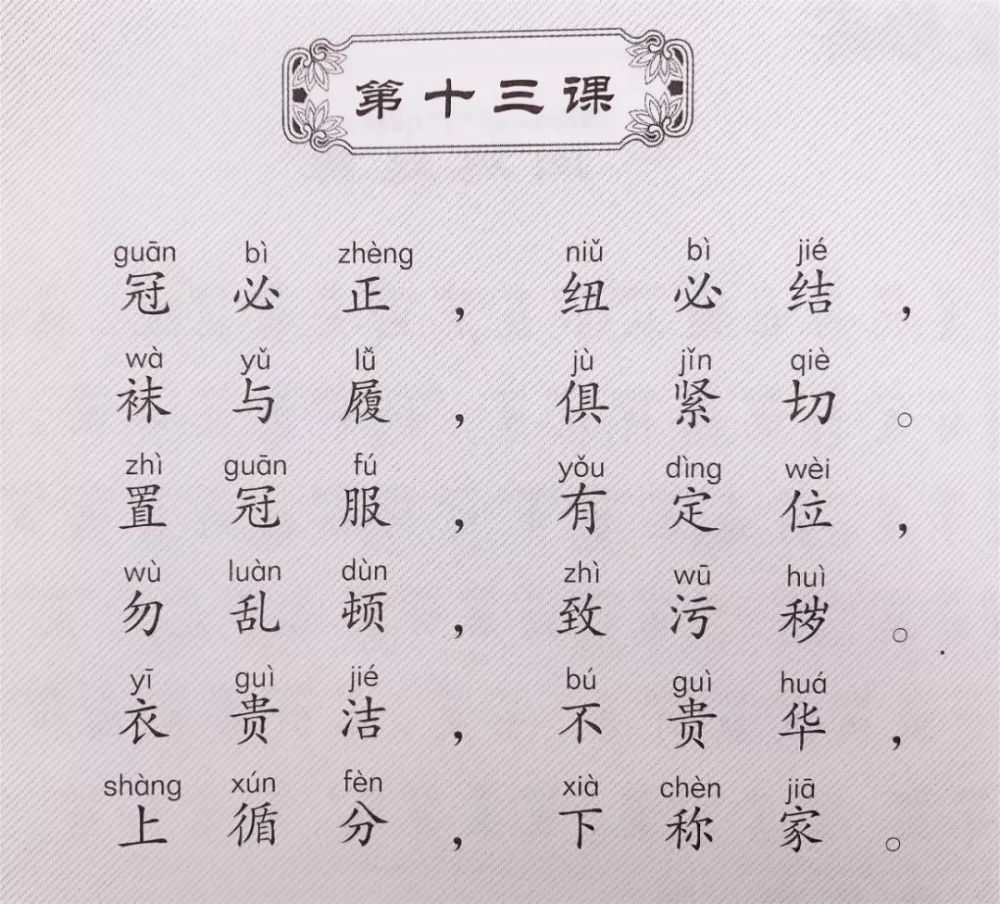 第十三课
guān bì zhèng niǔ bì jié
冠必正，纽必结，
wà yǔ lǚ jù jǐn qiè
袜与履，俱紧切。
zhì guān fú yǒu dìng wèi
置冠服，有定位，
wù luàn dùn zhì wū huì
勿乱顿，致污秽。
yī guì jié bú guì huá
衣贵洁，不贵华，
shàng xún fèn xià chèn jiā
上循分，下称家。